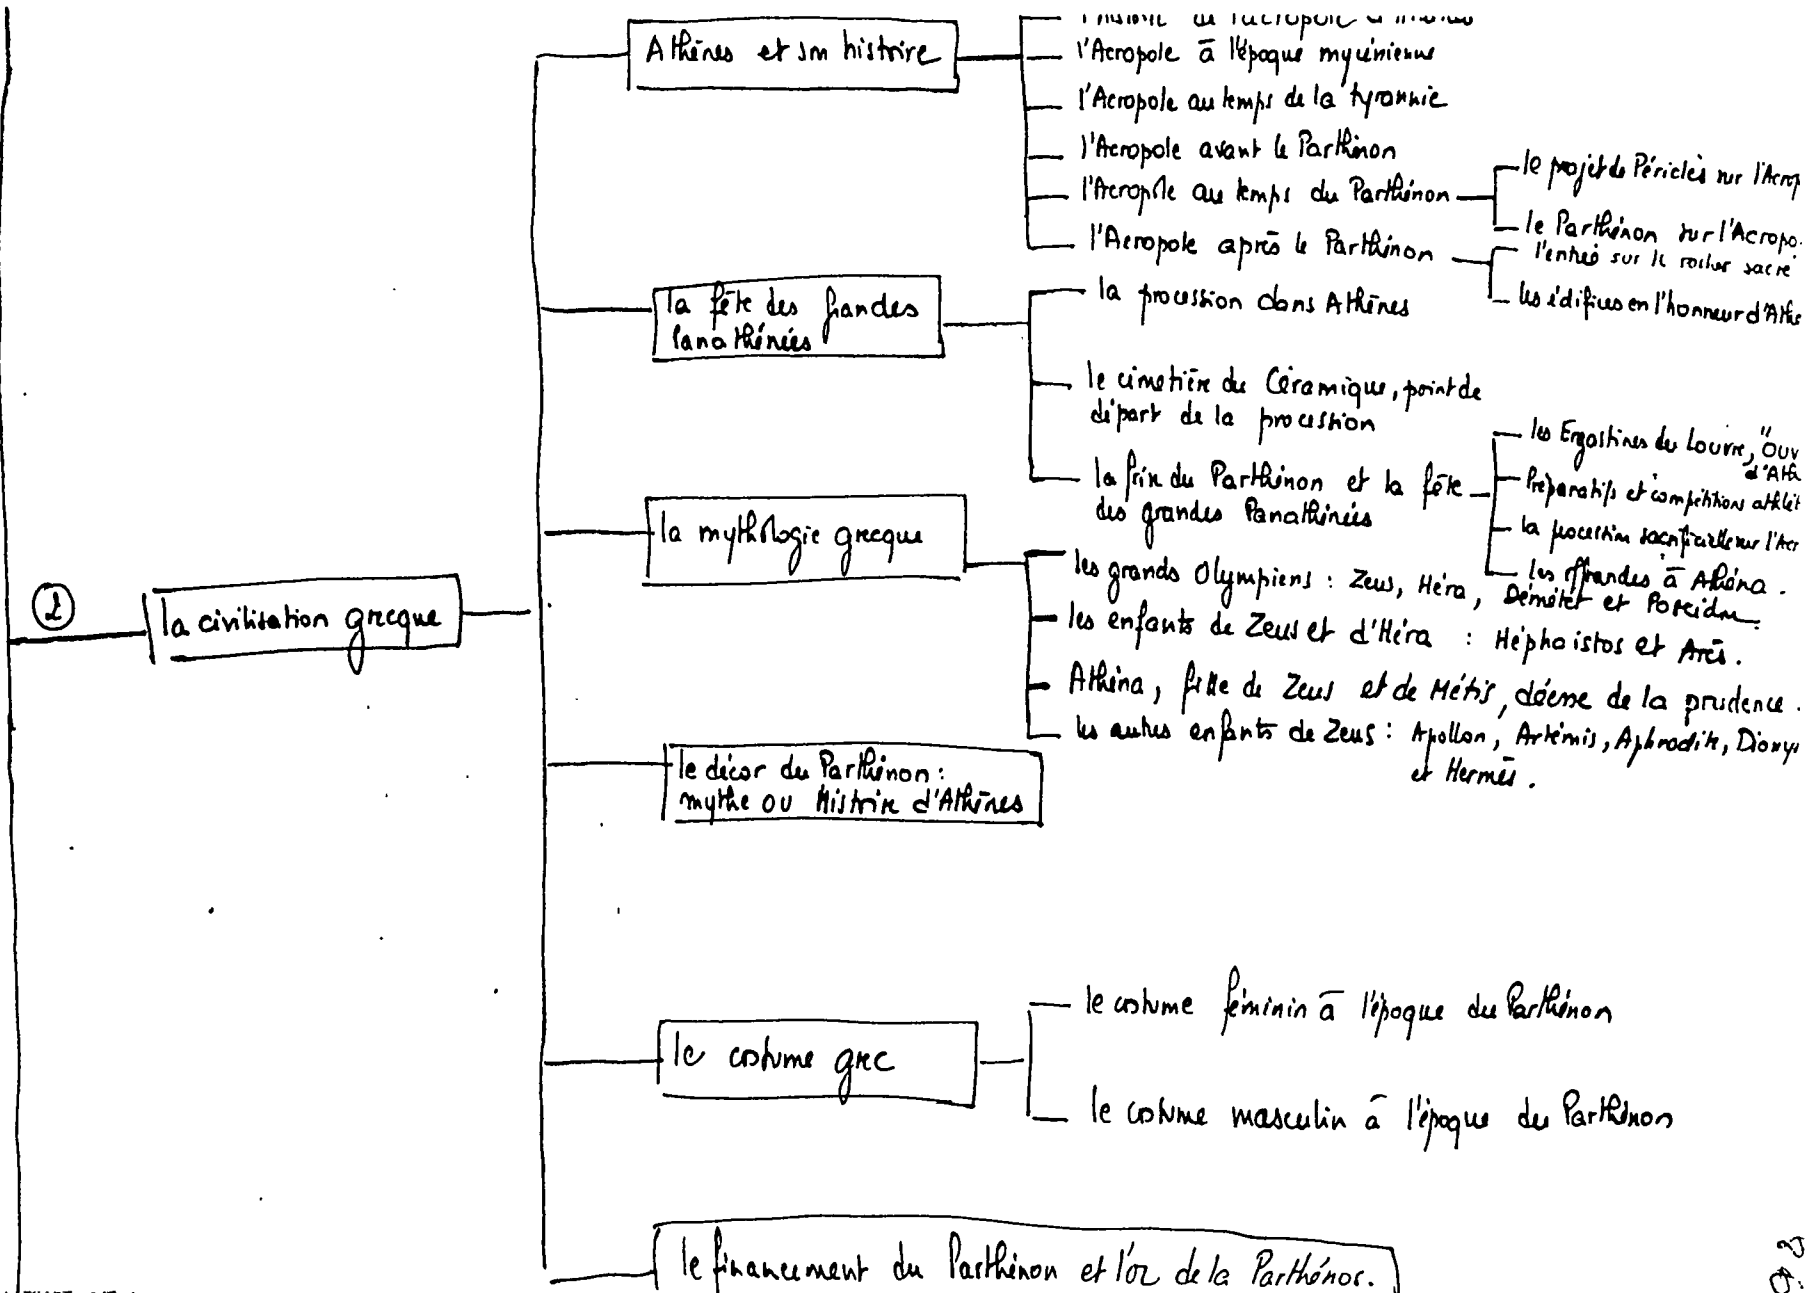 l'Acropole à l'époque mycénienne
Athènes et son histoire
l'Acropole au temps de la tyrannie
l'Acropole avant le Parthénon
l'Acropole au temps du Parthénon
le projet de Périclès sur l'Acrop
le Parthénon sur l'Acropo
l'Acropole après le Parthénon
l'entrée sur le rocher sacré
les édifices en l'honneur d'Athé
la fête des grandes
Panathénées
la procession dans Athènes
le cimetière du Céramique, point de
départ de la procession
la frise du Parthénon et la fête
des grandes Panathénées
les Ergastines du Louvre, "Ouv
d'Athé
Préparatifs et compétitions athlét
la procession sacrificielle sur l'Acr
les offrandes à Athéna.
la mythologie grecque
les grands Olympiens : Zeus, Héra, Déméter et Poseidon.
les enfants de Zeus et d'Héra : Héphaistos et Arès.
Athéna, fille de Zeus et de Métis, déesse de la prudence.
les autres enfants de Zeus : Apollon, Artémis, Aphrodite, Diony
et Hermès.
2
la civilisation grecque
le décor du Parthénon :
mythe ou Histoire d'Athènes
le costume grec
le costume féminin à l'époque du Parthénon
le costume masculin à l'époque du Parthénon
le financement du Parthénon et l'or de la Parthénos.